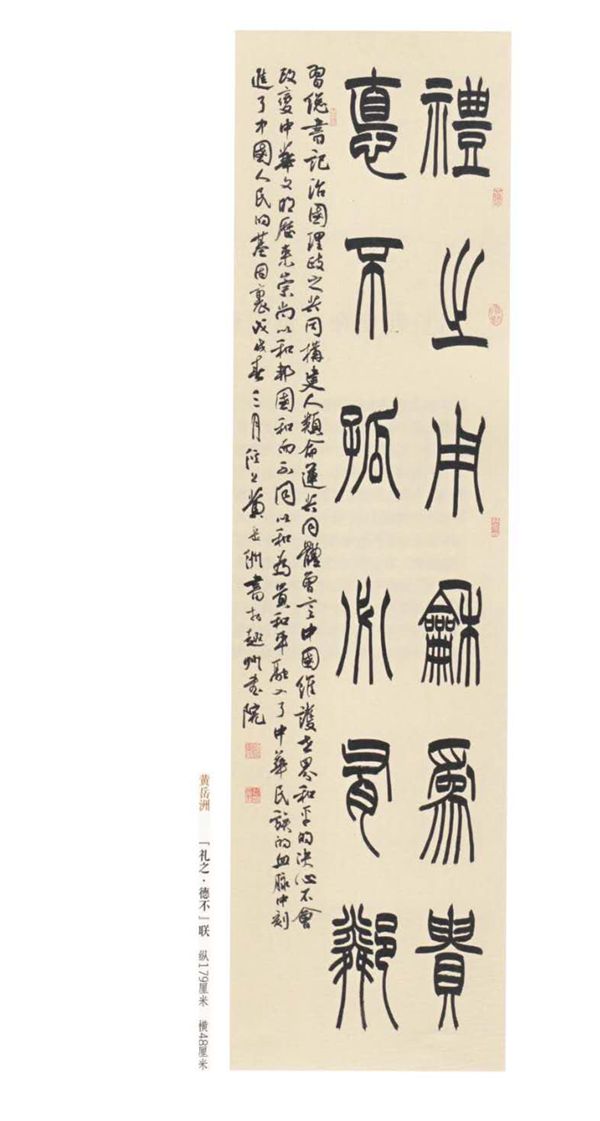 禮之用龢為貴
悳不孤必有鄰
習總書記治國理政之共同構建人類命運共同體曾言中國維護世界和平的決心不會
改變中華文明歷來崇尚以和邦國和而不同以和為貴和平融入了中華民族的血脈中刻
進了中國人民的基因裏戊戌春三月 黃岳洲書於越州書院
黄岳洲
「礼之·德不」联 纵179厘米 横48厘米